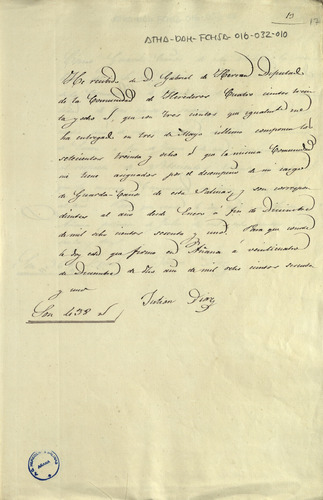 13
17
ATHA-DAH-FCHSA-016-032-010
He recibido de D. Gabriel de Herran Diputado
de la Comunidad de Herederos Cuatro cientos trein
ta y ocho r.^s que con tres cientos que igualmente me
ha entregado en tres de Mayo ultimo componen los
setecientos treinta y ocho r.^s que la misma Comunidad
me tiene asignados por el desempeño de mi cargo
de Guarda de estas Salinas, y son correspon
dientes al año desde Enero a fin de Diciembre
de mil ocho cientos sesenta y uno. Para que conste
le doy este que firmo en Añana a veinticuatro
de Diciembre de dho año de mil ocho cientos sesenta
y uno
Son 438 r.^s
Julian Diaz
AÑANA